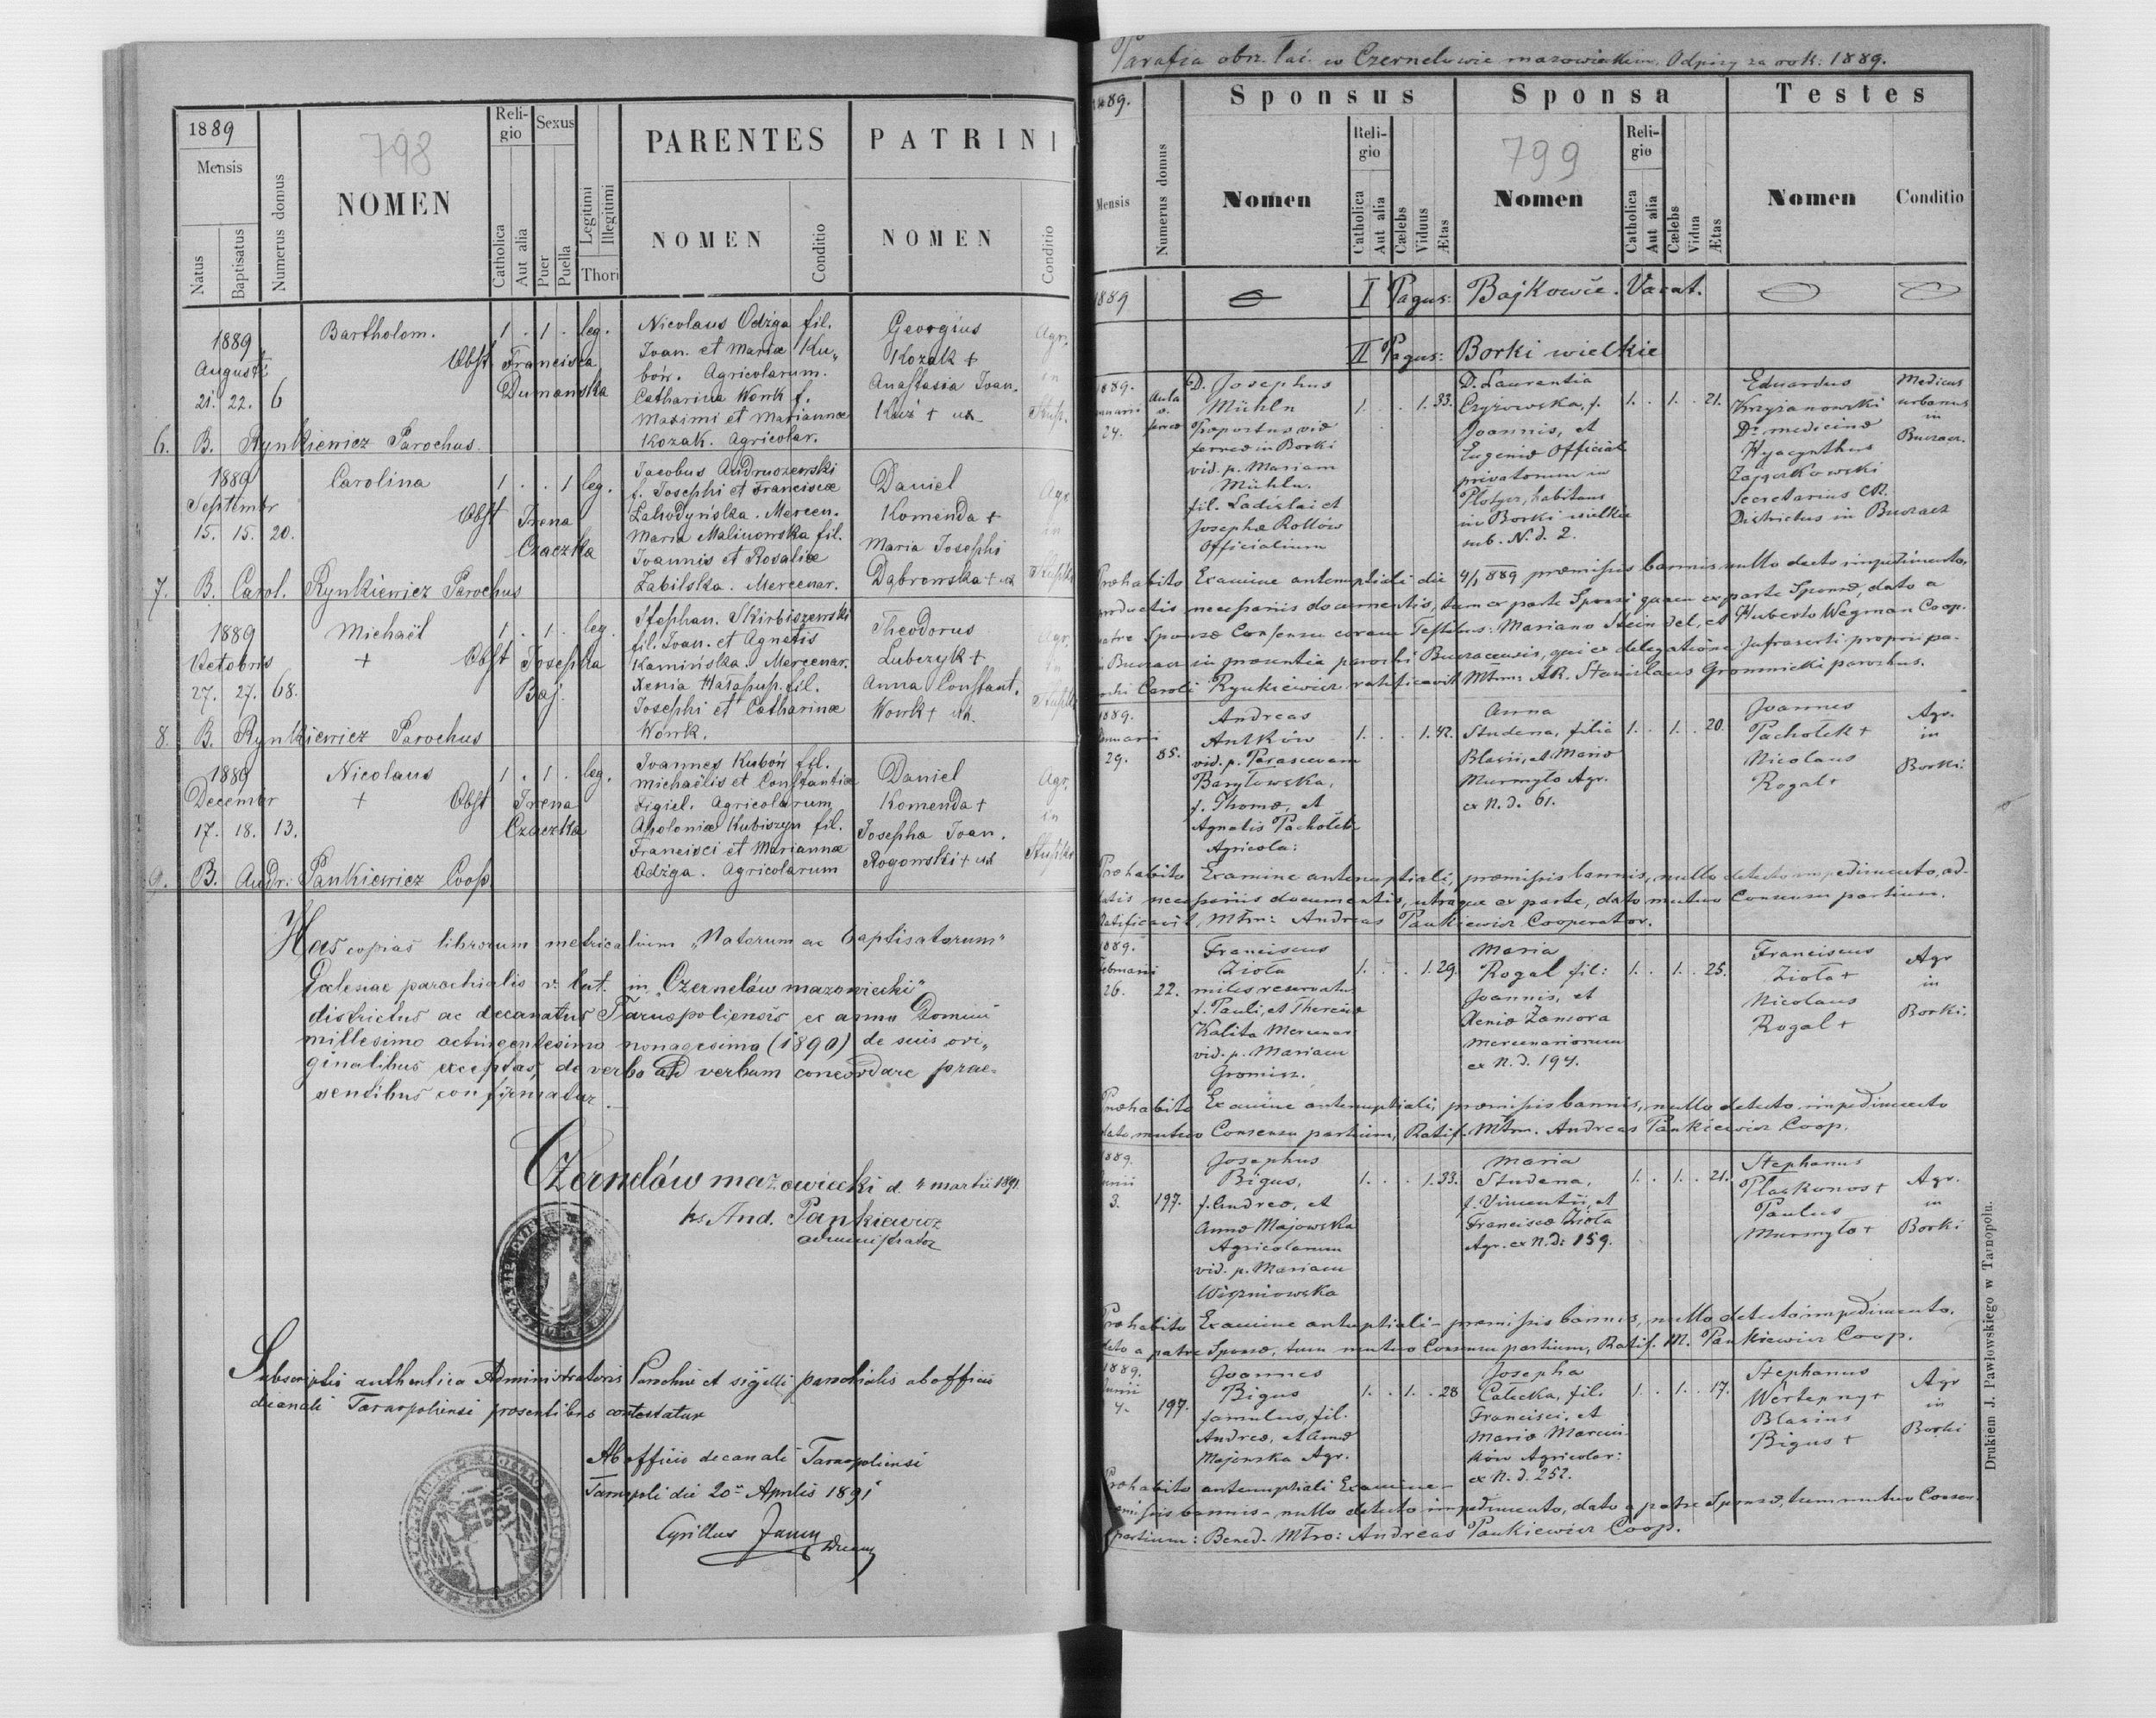 1889
Mensis
Natus
Baptisatus
Numerus domus
798
NOMEN
Religio
Catholica
Aut alia
Sexus
Puer
Puella
Legitimi
Illegitimi
Thori
PARENTES
NOMEN
Conditio
PATRINI
NOMEN
Conditio
1889
Augusti
21. 22. 6
Bartholom.
Obst. Francisca
Dumanska
1 . 1 . leg.
Nicolaus Odżga fil.
Ivan. et Mariæ Ku„
bón. Agricolarum.
Catharina Wowk f.
Maximi et Mariannæ
Kozak. Agricolar.
Georgius
Kozak +
Anastasia Ivan.
Kuź + ux
Agr.
in
Stup.
6. B. Rynkiewicz Parochus.
1889
Septembr
15. 15. 20.
Carolina
Obst Irena
Czaczka
1 . . 1 leg.
Jacobus Andruszewski
f. Josephi et Franciscæ
Lahodyńska. Mercen.
Maria Malinowska fil.
Ivannis et Rosaliæ
Zabilska. Mercenar.
Daniel
Komenda +
Maria Josephi
Dąbrowska + ux
Agr.
in
Stupki
7. B. Carol. Rynkiewicz Parochus
1889
Octobris
27. 27. 68.
Michaël
+
Obst Josepha
Baj
1 . 1 . leg.
Stephan. Skirbiszewski
fil. Ivan. et Agnetis
Kamińska. Mercenar.
Xenia fil.
Josephi et Catharinæ
Wowk.
Theodorus
Lubczyk +
Anna Constant.
Wowk + ux.
Agr.
in
Stupki
8. B. Rynkiewicz Parochus
1889
Decembr
17. 18. 13.
Nicolaus
+
Obst Irena
Czaczka
1 . 1 . leg.
Ivannes Kubón fil.
Michaëlis et Constantiæ
Figiel. Agricolarum
Apolonia Kubiszyn fil.
Francisci et Mariannæ
Odżga. Agricolarum
Daniel
Komenda +
Josepha Ivan.
Rogowski + ux
Agr.
in
Stupki
9. B. Andr: Pankiewicz Coop.
Has copias librorum metricalium „Natorum ac baptisatorum"
Ecclesiae parochialis r. lat. in „Czernelów mazowiecki"
districtus ac decanatus Tarnopoliensis ex anno Domini
millesimo octingentesimo nonagesimo (1890) de suis ori„
ginalibus exceptas, de verbo ad verbum concordare prae-
sentibus confirmatur.
Czernelów mazowiecki d. 4 martii 1891.
ks And. Pankiewicz
administrator
Subscriptio authentica Administratoris Parochiæ et sigilli parochialis ab officio
decanali Tarnopoliensi præsentibus contestatur
Ab officio decanali Tarnopoliensi
Tarnopoli die 20ᵃ Aprilis 1891
Cyrillus
Parafia obrz. łać. w Czernelowie mazowieckim. Odpisy za rok: 1889.
1889.
Mensis
Numerus domus
Sponsus
Nomen
Religio
Catholica
Aut alia
Cælebs
Viduus
Ætas
Sponsa
799
Nomen
Religio
Catholica
Aut alia
Cælebs
Vidua
Ætas
Testes
Nomen
Conditio
1889
I Pagus: Bajkowce. Vacat.
II Pagus: Borki wielkie
1889.
24.
D. Josephus
Mühln
Præpositus viæ
ferreæ in Borki
vid. p. Mariam
Mühln.
fil. Ladislai et
Josephæ Rollów
Officialium
1. . . 1. 33.
D. Laurentia
Czyżowska, f.
Joannis, et
Eugeniæ Official
privatorum in
habitans
in Borki wielkie
sub. N. d. 2.
1. . 1. . 21.
Eduardus
Krzyżanowski
Dr. medicinæ
Hyacynthus
Secretarius CR.
Districtus in Buczacz
Medicus
urbanus
in
Buczacz.
Præhabito Examine antenuptiali die 4/1 889 præmissis bannis nullo detecto impedimento,
productis necessariis documentis, tum ex parte Sponsi quam ex parte Sponsæ, dato a
patre Sponsæ Consensu coram Testibus: Mariano et Huberto Wegman Coop.
in Buczacz in præsentia parochi Buczacensis, qui ex delegatione Infrascripti proprii pa-
rochi Caroli Rynkiewicz ratificavit Mtrm: AR. Stanislaus Gromnicki parochus.
1889.
Januarii
29. 85.
Andreas
Antków
vid. p. Parascevam
Baryłowska,
f. Thomæ, et
Agnetis Pachołek
Agricola:
1. . . 1. 42.
Anna
Studena, filia
Blasii, et Mariæ
Murmyło Agr.
ex N. d. 61.
1. . 1. . 20.
Joannes
Pachołek +
Nicolaus
Rogal +
Agr.
in
Borki.
Præhabito Examine antenuptiali, præmissis bannis, nullo detecto impedimento, ad-
latis necessariis documentis, utraque ex parte, dato mutuo Consensu partium.
Ratificavit Mtrm: Andreas Pankiewicz Cooperator.
1889.
Februarii
26. 22.
Franciscus
Zioła
miles reservatus
f. Pauli, et Theresiæ
Kalita Mercenar
vid. p. Mariam
Gromisz.
1. . . 1. 29.
Maria
Rogal fil:
Joannis, et
Xeniæ Zamora
mercenariorum
ex N. d. 194.
1. . 1. . 25.
Franciscus
Zioła +
Nicolaus
Rogal +
Agr
in
Borki.
Præhabito Examine antenuptiali, præmissis bannis, nullo detecto impedimento
dato mutuo Consensu partium, Ratif. Mtrm. Andreas Pankiewicz Coop.
1889.
Junii
3. 197.
Josephus
Bigus,
f. Andreæ, et
Annæ Majowska
Agricolarum
vid. p. Mariam
Wiszniowska
1. . . 1. 33.
Maria
Studena,
f. Vincentii, et
Franciscæ Zioła
Agr. ex N. d: 159.
1. . 1. . 21.
Stephanus
Płaskonos +
Paulus
Murmyło +
Agr.
in
Borki
Præhabito Examine antenuptiali - præmissis bannis, nullo detecto impedimento.
dato a patre Sponsæ, tum mutuo Consensu partium, Ratif. M. Pankiewicz Coop.
1889.
Junii
4. 197.
Joannes
Bigus
famulus, fil.
Andreæ, et Annæ
Majowska Agr.
1. . 1. . 28
Josepha
Całecka, fil.
Francisci, et
Mariæ Marcin-
ków Agricolar:
ex N. d. 252.
1. . 1. . 17.
Stephanus
Wertepny +
Blasius
Bigus +
Agr
in
Borki
Præhabito antenuptiali Examine -
præmissis bannis - nullo detecto impedimento, dato a patre Sponsæ, tum mutuo Consen.
partium: Bened. Mtro: Andreas Pankiewicz Coop.
Drukiem J. Pawłowskiego w Tarnopolu.